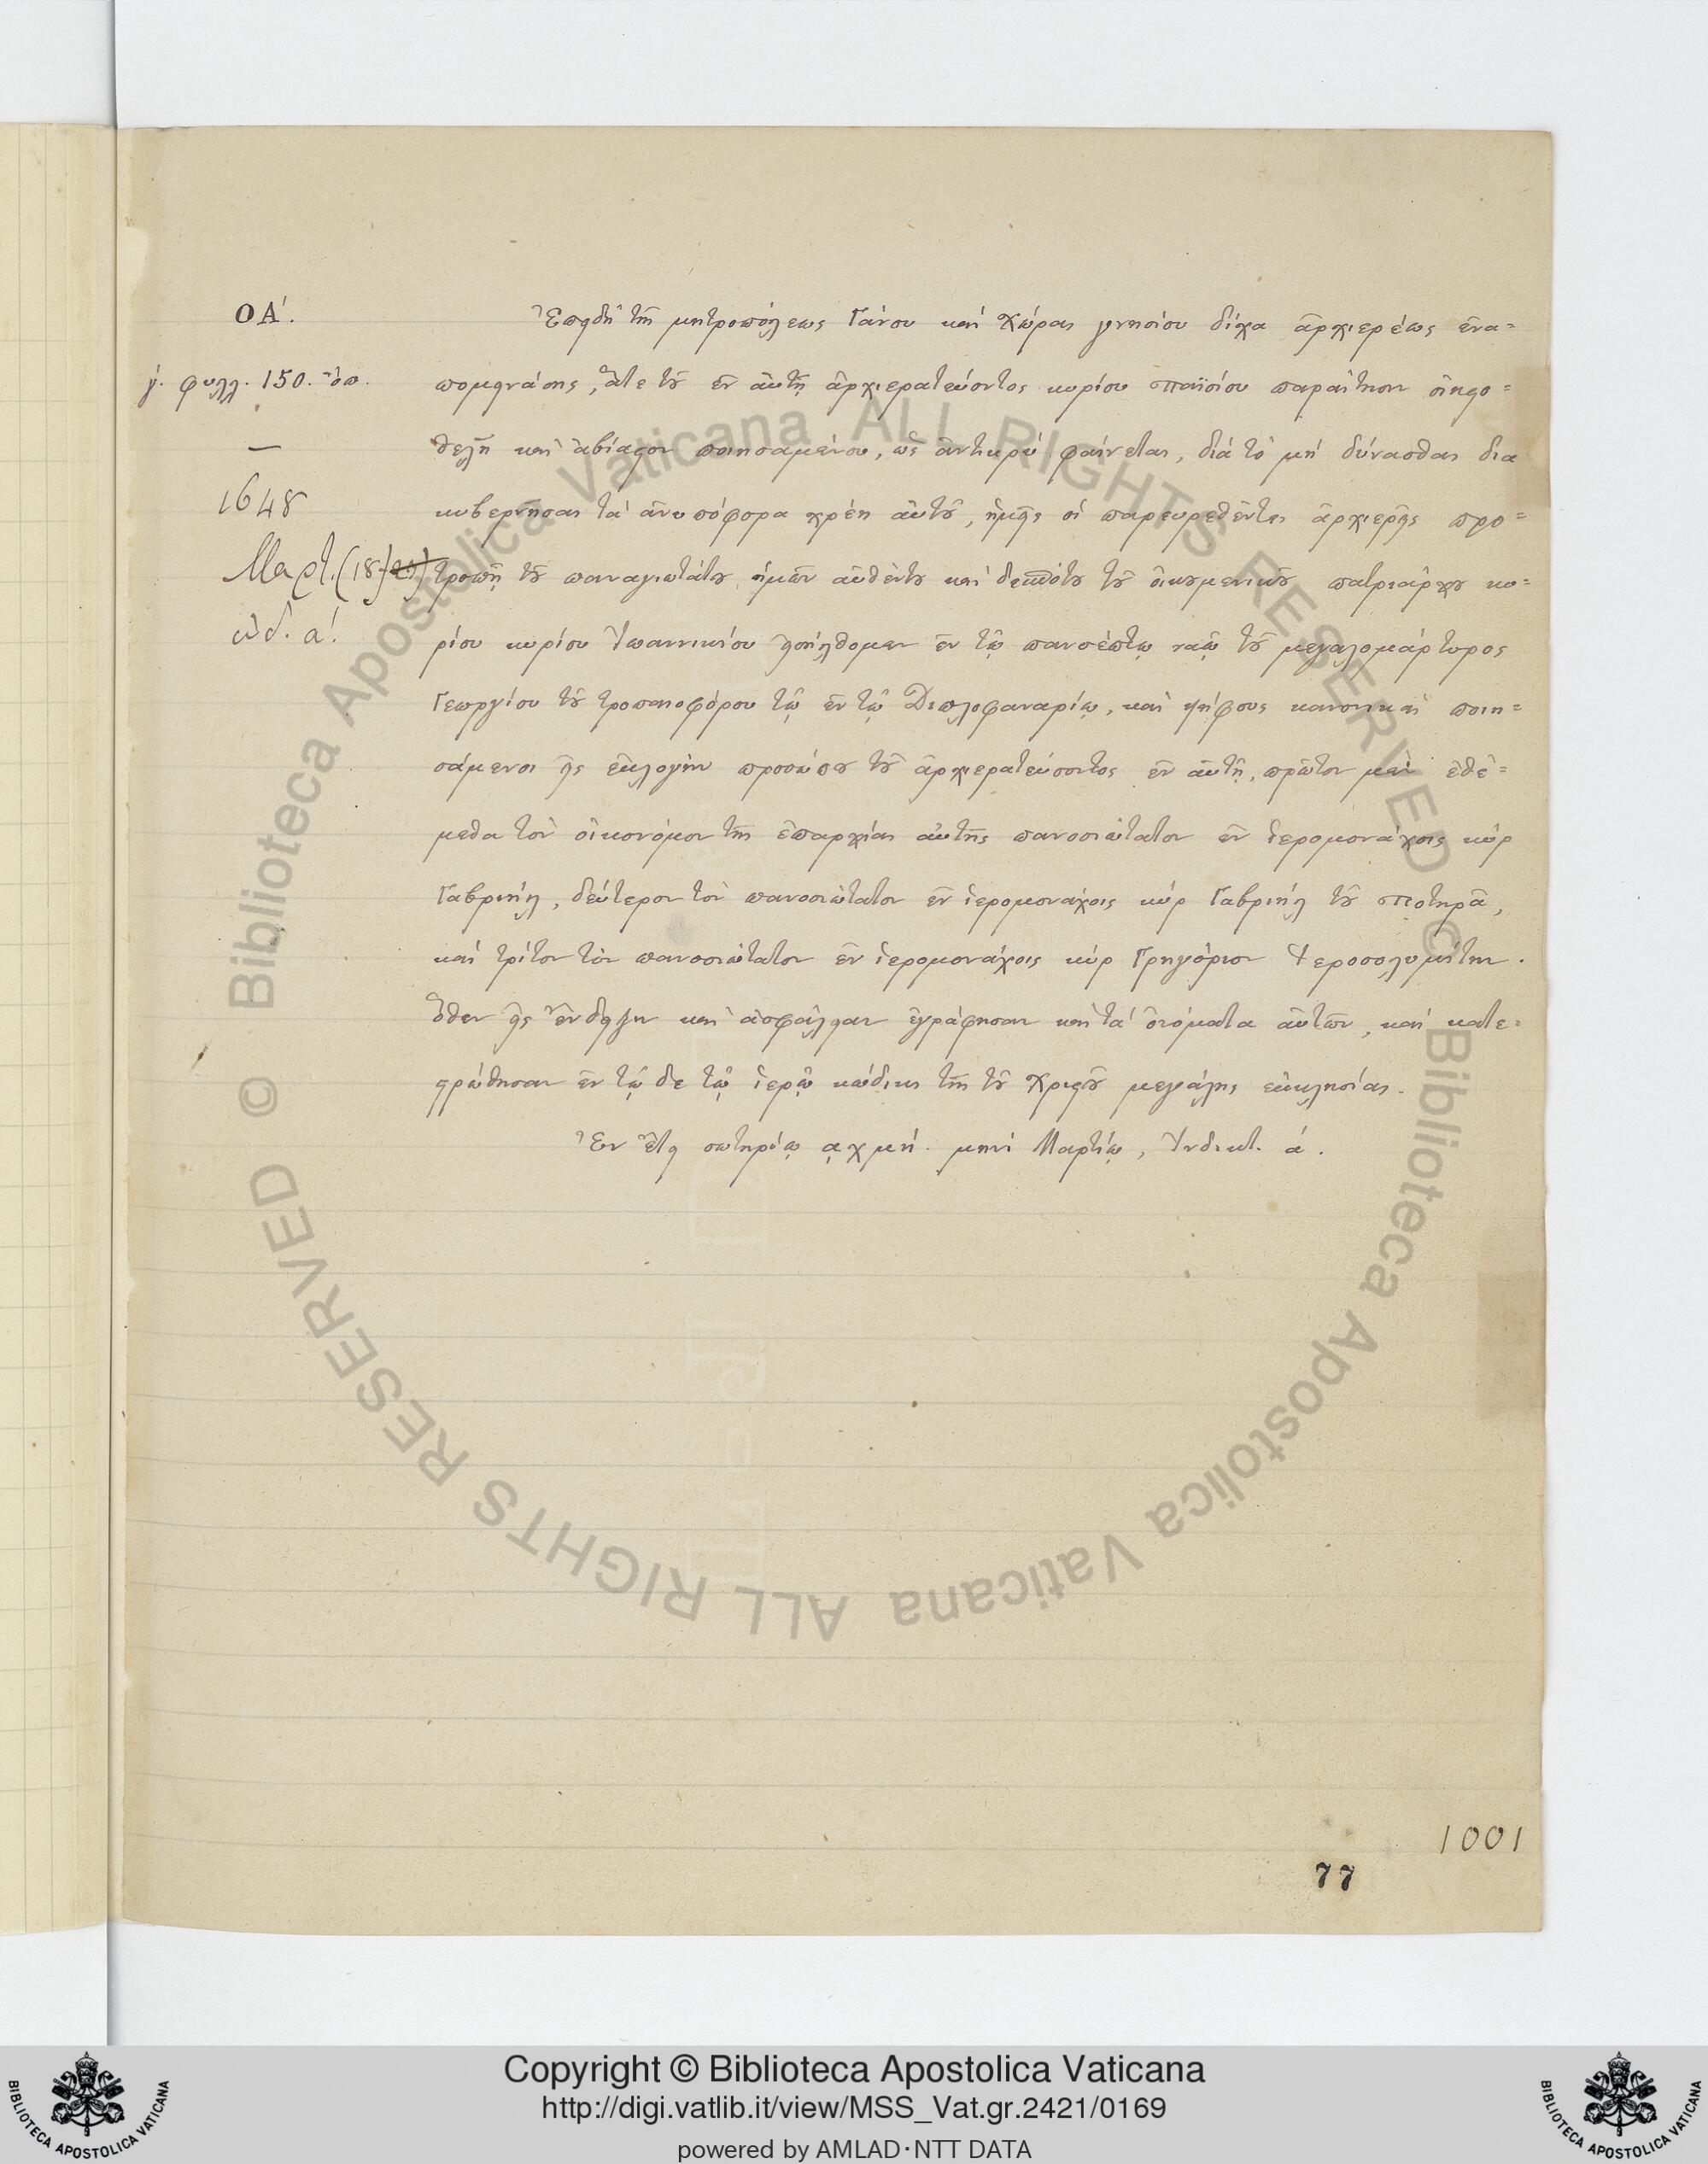 ΟΑ΄.
γ΄. φυλλ. 150. ὄπ.
—
1648
Μαρτ. (18)
ινδ. α΄.
Ἐπειδὴ τῆς μητροπόλεως Γάνου καὶ Χώρας γνησίου δίχα ἀρχιερέως ἐνα=
πομεινάσης, ἅτε τοῦ ἐν αὐτῇ ἀρχιερατεύοντος κυρίου Παϊσίου παραίτησιν οἰκειο=
θελῆ καὶ ἀβίαστον ποιησαμένου, ὡς ἀντικρύ φαίνεται, διὰ τὸ μὴ δύνασθαι δια
κυβερνῆσαι τὰ ἀνυπόφορα χρέη αὐτοῦ, ἡμεῖς οἱ παρευρεθέντες ἀρχιερεῖς προ=
τροπῇ τοῦ παναγιωτάτου ἡμῶν αὐθέντου καὶ δεσπότου τοῦ οἰκουμενικοῦ πατριάρχου κυ=
ρίου κυρίου Ἰωαννικίου εἰσήλθομεν ἐν τῷ πανσέπτῳ ναῷ τοῦ μεγαλομάρτυρος
Γεωργίου τοῦ τροπαιοφόρου τῷ ἐν τῷ Διπλοφαναρίῳ, καὶ ψήφους κανονικὰς ποιη=
σάμενοι εἰς ἐκλογὴν προσώπου τοῦ ἀρχιερατεύσοντος ἐν αὐτῇ, πρῶτον μὲν ἐθέ=
μεθα τὸν οἰκονόμον τῆς ἐπαρχίας αὐτῆς πανοσιώτατον ἐν ἱερομονάχοις κὺρ
Γαβριὴλ, δεύτερον τὸν πανοσιώτατον ἐν ἱερομονάχοις κὺρ Γαβριὴλ τοῦ Ποτηρᾶ,
καὶ τρίτον τὸν πανοσιώτατον ἐν ἱερομονάχοις κὺρ Γρηγόριον Ἱεροσολυμίτην.
Ὅθεν εἰς ἔνδειξιν καὶ ἀσφάλειαν ἐγράφησαν καὶ τὰ ὀνόματα αὐτῶν, καὶ κατε=
στρώθησαν ἐν τῷ δε τῷ ἱερῷ κώδικι τῆς τοῦ Χριστοῦ μεγάλης ἐκκλησίας.
Ἐν ἔτει σωτηρίῳ ͵αχμη΄. μηνὶ Μαρτίῳ, Ἰνδικτ. α΄.
1001
77
© Biblioteca Apostolica Vaticana ALL RIGHTS RESERVED
© Biblioteca Apostolica Vaticana ALL RIGHTS RESERVED
BIBLIOTECA APOSTOLICA VATICANA
Copyright © Biblioteca Apostolica Vaticana
http://digi.vatlib.it/view/MSS_Vat.gr.2421/0169
powered by AMLAD·NTT DATA
BIBLIOTECA APOSTOLICA VATICANA